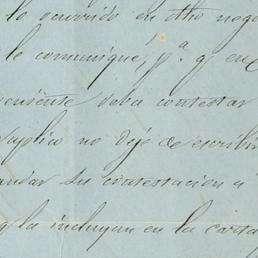 lo ocurrido en dho nego
le comunique, p.ª q en
deba contestar
suplico no deje de escribir
su contestacion á
q la incluyan en la carta